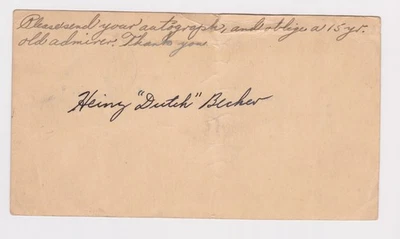 Please send your autograph, and oblige a 15 yr.
old admirer. Thank you
Heinz "Dutch" Becker